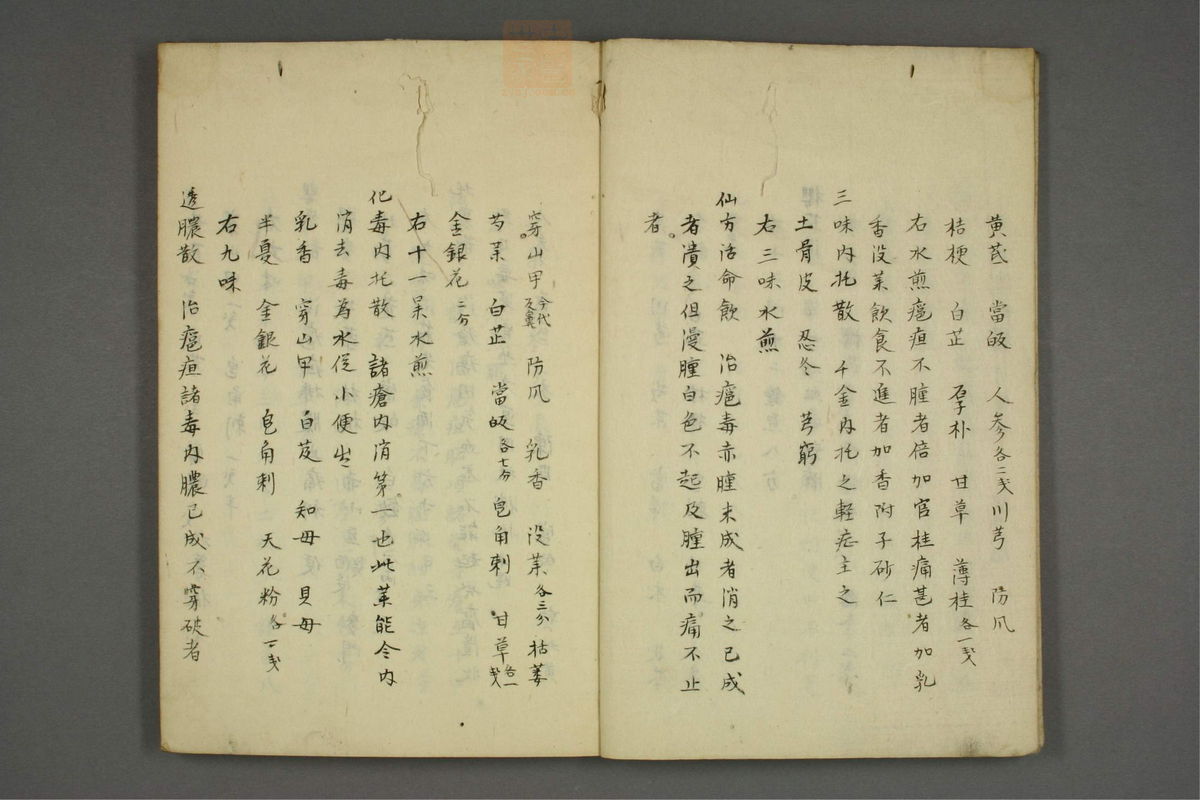 黄芪 當皈 人参各二戔川芎 防风
桔梗 白芷 厚朴 甘草 薄桂各一戔
右水煎瘡疽不腫者倍加官桂痛甚者加乳
香没茱飲食不進者加香附子砂仁
三味内托散 千金内托之軽症主之
土骨皮 忍冬 芎窮
右三味水煎
仙方活命飲 治瘡毒赤腫未成者消之已成
者潰之但漫腫白色不起及腫出而痛不止
者
穿山甲今代反糞 防风 乳香 没茱各三分括蔞
芍茱 白芷 當皈各七分 皂角刺 甘草各一戔
金銀花二分
右十一味水煎
化毒内托散 諸瘡内消第一也此茱能令内
消去毒為水從小便出
乳香 穿山甲 白芨 知母 貝母
半夏 金銀花 皂角刺 天花粉各一戔
右九味
透膿散 治瘡疽諸毒内膿已成不穿破者